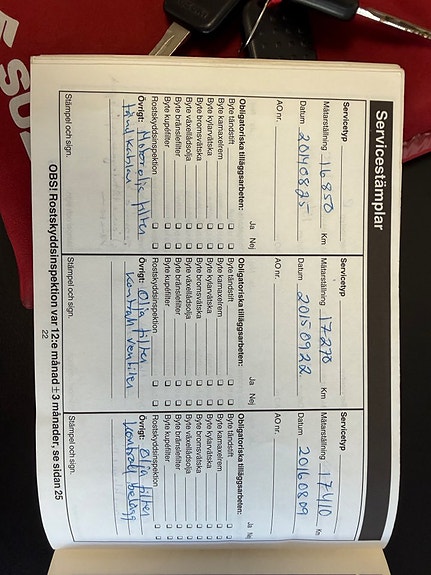 Servicestämplar
Servicetyp
Mätarställning 16850 Km
Datum 20140825
AO nr.
Obligatoriska tilläggsarbeten: Ja Nej
Byte tändstift
Byte kamaxelrem
Byte kylarvätska
Byte bromsvätska
Byte växellådsolja
Byte bränslefilter
Byte kupéfilter
Rostskyddsinspektion
Övrigt: Motorolja filter
tändkablar
Stämpel och sign.
Servicetyp
Mätarställning 17270 Km
Datum 20150922
AO nr.
Obligatoriska tilläggsarbeten: Ja Nej
Byte tändstift
Byte kamaxelrem
Byte kylarvätska
Byte bromsvätska
Byte växellådsolja
Byte bränslefilter
Byte kupéfilter
Rostskyddsinspektion
Övrigt: Olja filter
kontroll ventiler
Stämpel och sign.
Servicetyp
Mätarställning 17410 Km
Datum 20160809
AO nr.
Obligatoriska tilläggsarbeten: Ja Nej
Byte tändstift
Byte kamaxelrem
Byte kylarvätska
Byte bromsvätska
Byte växellådsolja
Byte bränslefilter
Byte kupéfilter
Rostskyddsinspektion
Övrigt: Olja filter
kontroll belägg
Stämpel och sign.
OBS! Rostskyddsinspektion var 12:e månad ± 3 månader, se sidan 25
22